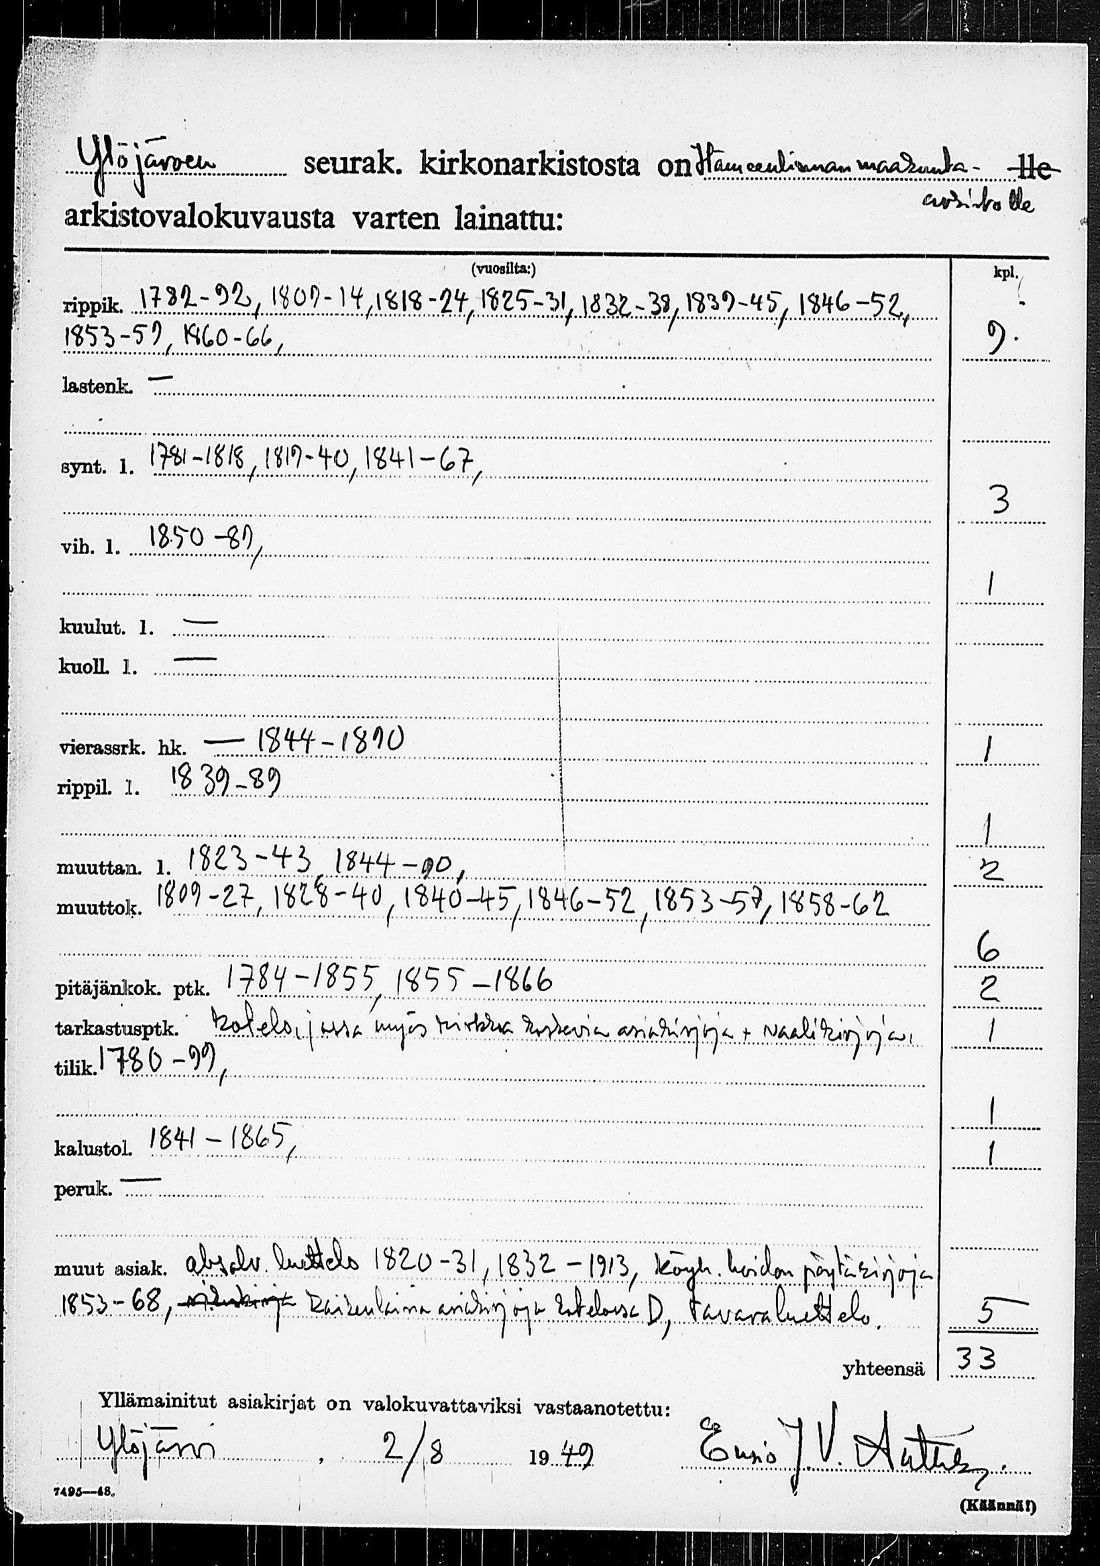 Ylöjärven seurak. kirkonarkistosta on Hämeenlinnan maakunta- lle
arkistolle
arkistovalokuvausta varten lainattu:
(vuosilta:) kpl.
rippik. 1782-92, 1807-14, 1818-24, 1825-31, 1832-38, 1839-45, 1846-52,
1853-59, 1860-66, 9.
lastenk. —
synt. l. 1781-1818, 1819-40, 1841-67,
3
vih. l. 1850-89,
1
kuulut. l. —
kuoll. l. —
vierassrk. hk. — 1844-1890 1
rippil. l. 1839-89
1
muuttan. l. 1823-43, 1844-90, 2
muuttok. 1809-27, 1828-40, 1840-45, 1846-52, 1853-57, 1858-62
6
pitäjänkok. ptk. 1784-1855, 1855-1866 2
tarkastusptk. kotelo, jossa myös kirkkoa koskevia asiakirjoja + vaalikirjoja, 1
tilik. 1780-99,
1
kalustol. 1841-1865, 1
peruk. —
muut asiak. absolv. luettelo 1820-31, 1832-1913, köyh. hoidon pöytäkirjoja
1853-68, kaikenlaisia asiakirjoja kotelossa D, tavaraluettelo. 5
yhteensä 33
Yllämainitut asiakirjat on valokuvattaviksi vastaanotettu:
Ylöjärvi, 2/8 1949 Ensio J. V.
7495—48.
(Käännä!)